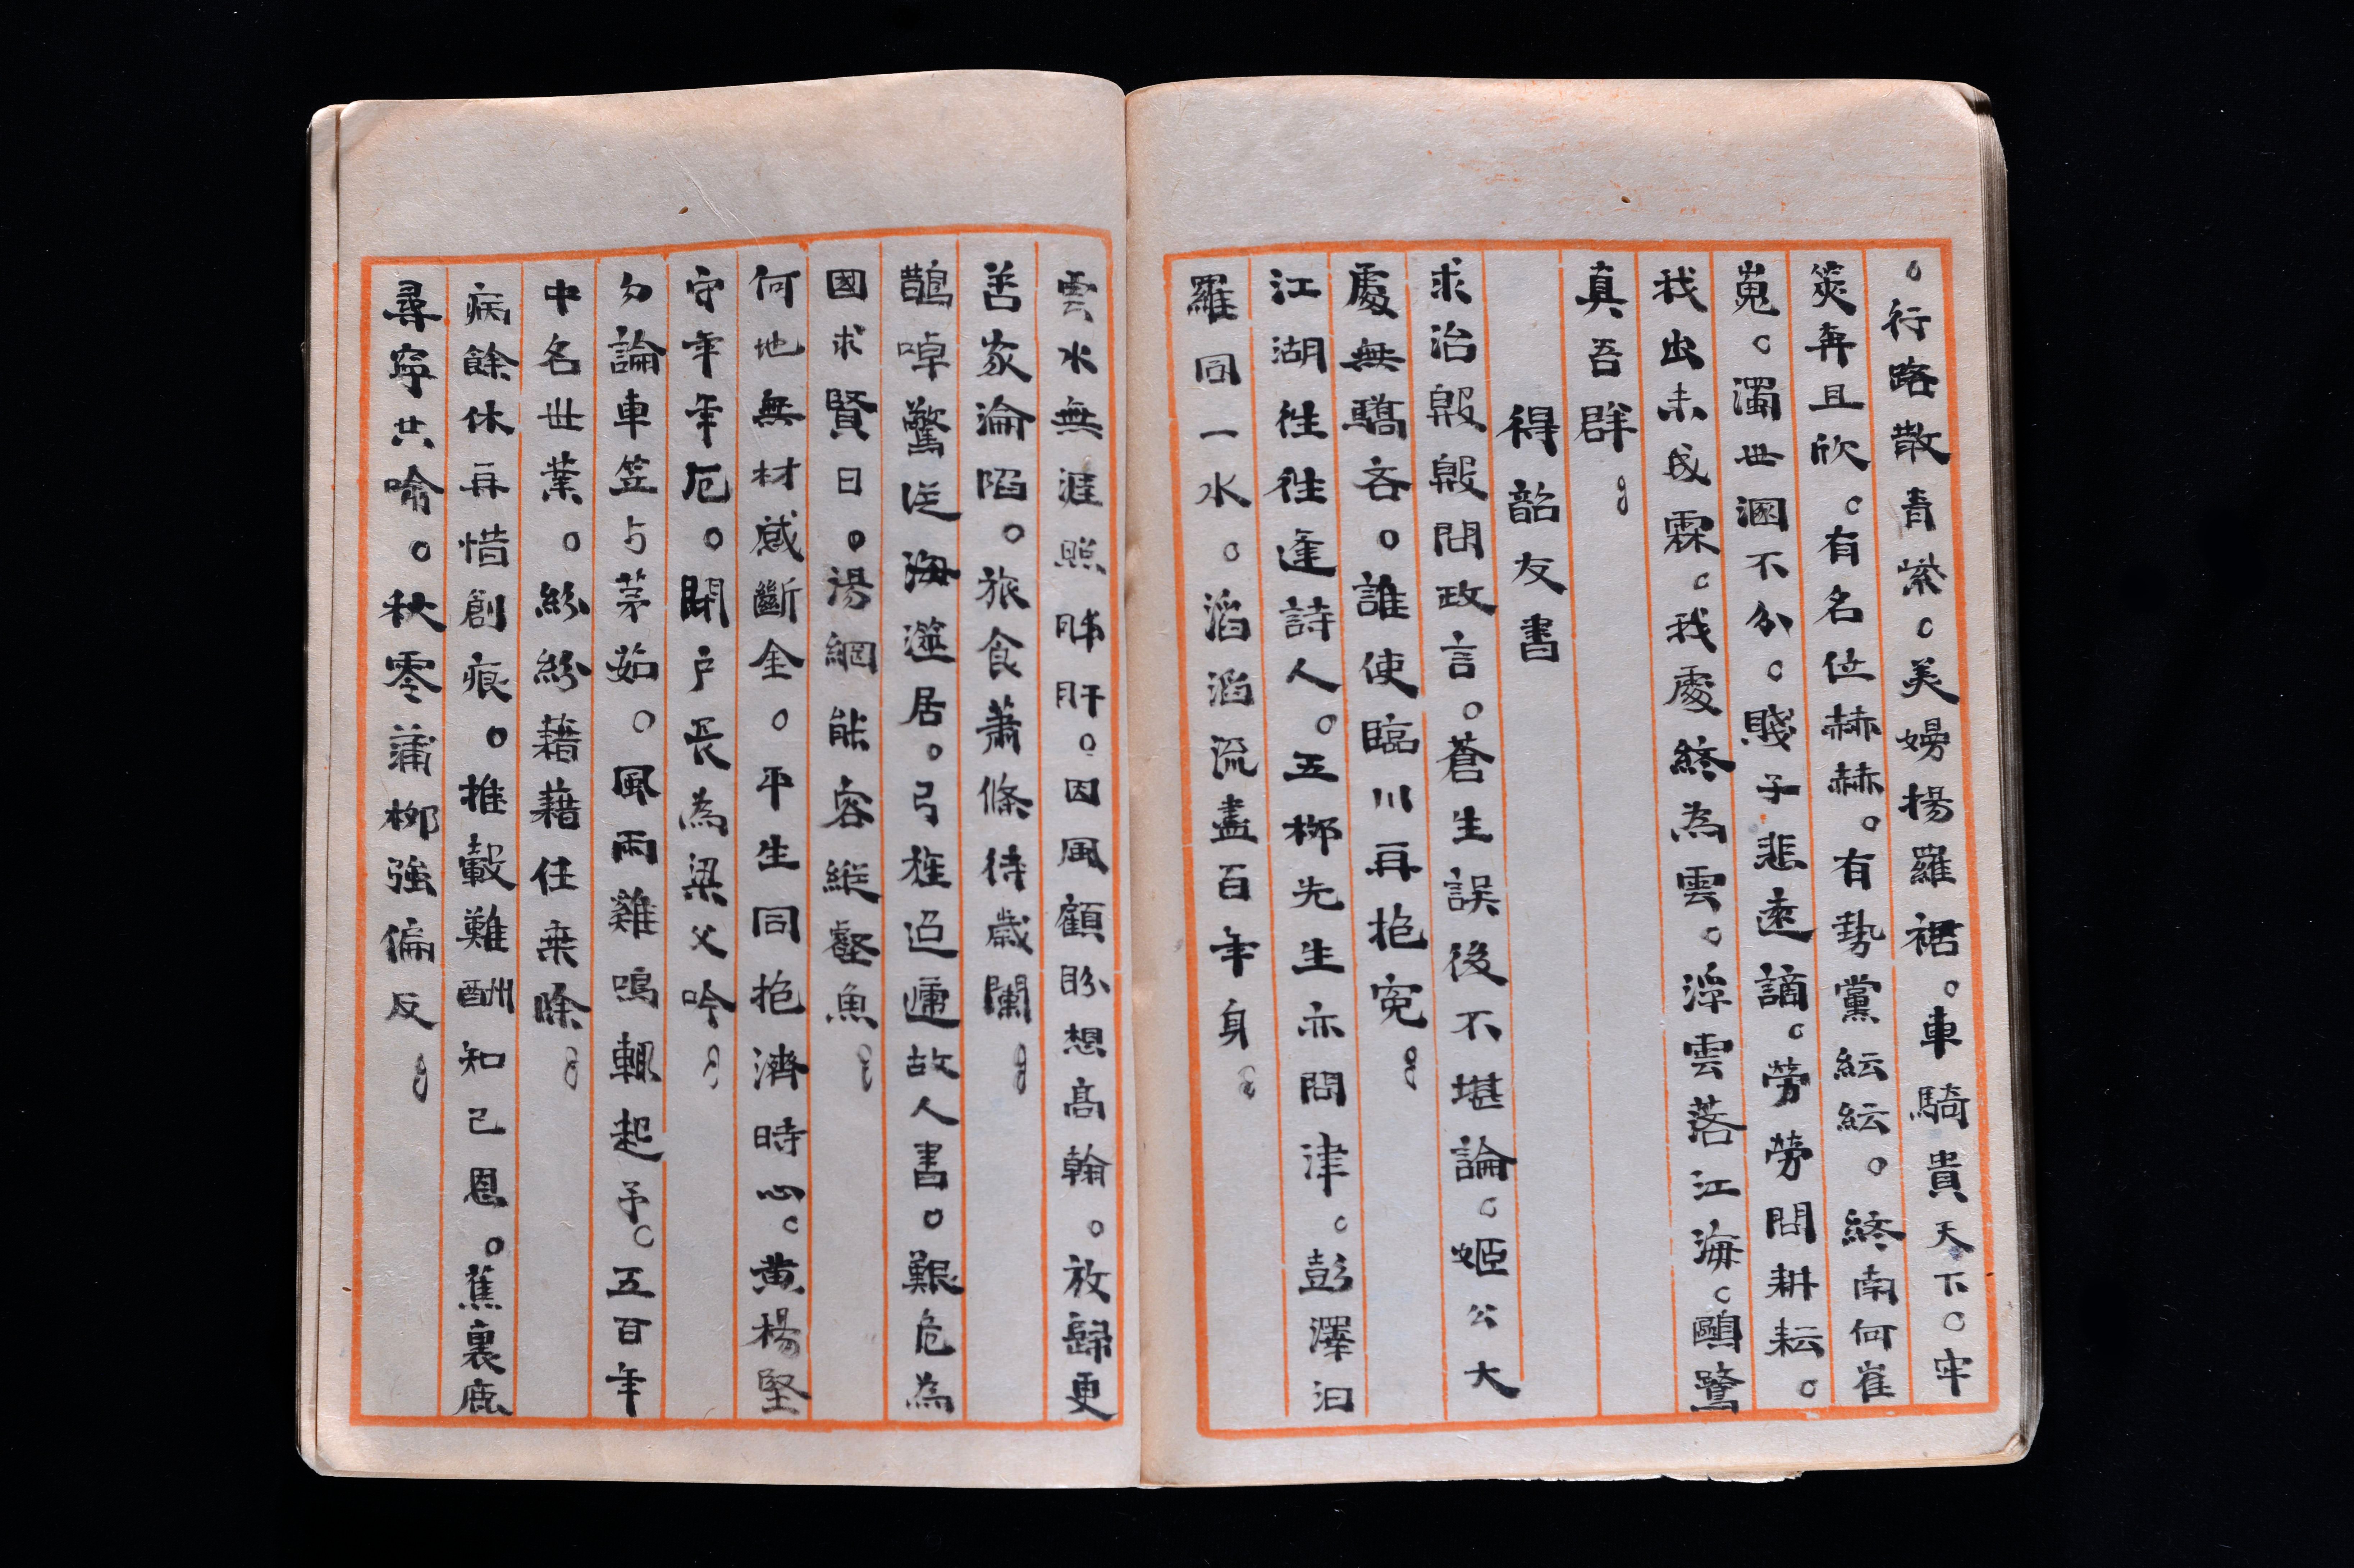 。行路散青紫。美嫚揚羅裾。車騎貴天下。牢
筴再且欣。有名位赫赫。有勢黨紜紜。終南何崔
嵬。濁世溷不分。賤子悲遠謫。勞勞問耕耘。
我出未成霖。我處終為雲。浮雲落江海。鷗鷺
真吾群。
得韶友書
求治殷殷問政言。蒼生誤後不堪論。姬公大
處無驕吝。誰使臨川再抱冤。
江湖往往逢詩人。五柳先生亦問津。彭澤汨
羅同一水。滔滔流盡百年身。
雲水無涯照肺肝。因風顧盼想高翰。放歸更
苦家淪陷。旅食蕭條待歲闌。
鵲噪驚從海澨居。弓旌迢遞故人書。艱危為
國求賢日。湯網能容縱壑魚。
何地無材感斷金。平生同抱濟時心。黃楊堅
守年年厄。閉戶長為梁父吟。
勿論車笠与茅茹。風雨雞鳴輒起予。五百年
中名世業。紛紛藉藉任乘除。
病餘休再惜創痕。推轂難酬知己恩。蕉裏鹿
尋寧共喻。秋零蒲柳強偏反。